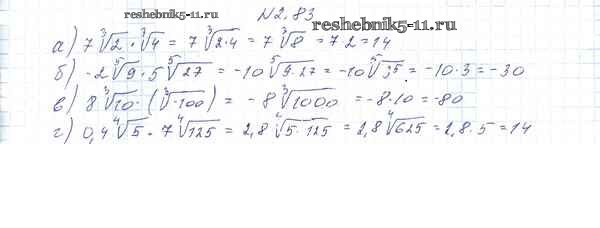 reshebnik5-11.ru
№2.83
reshebnik5-11.ru
а) 7∛2 · ∛4 = 7∛(2·4) = 7∛8 = 7·2 = 14
б) -2⁵√9 · 5⁵√27 = -10⁵√(9·27) = -10⁵√3⁵ = -10·3 = -30
в) 8∛10 · (∛-100) = -8∛1000 = -8·10 = -80
г) 0,4⁴√5 · 7⁴√125 = 2,8⁴√(5·125) = 2,8⁴√625 = 2,8·5 = 14